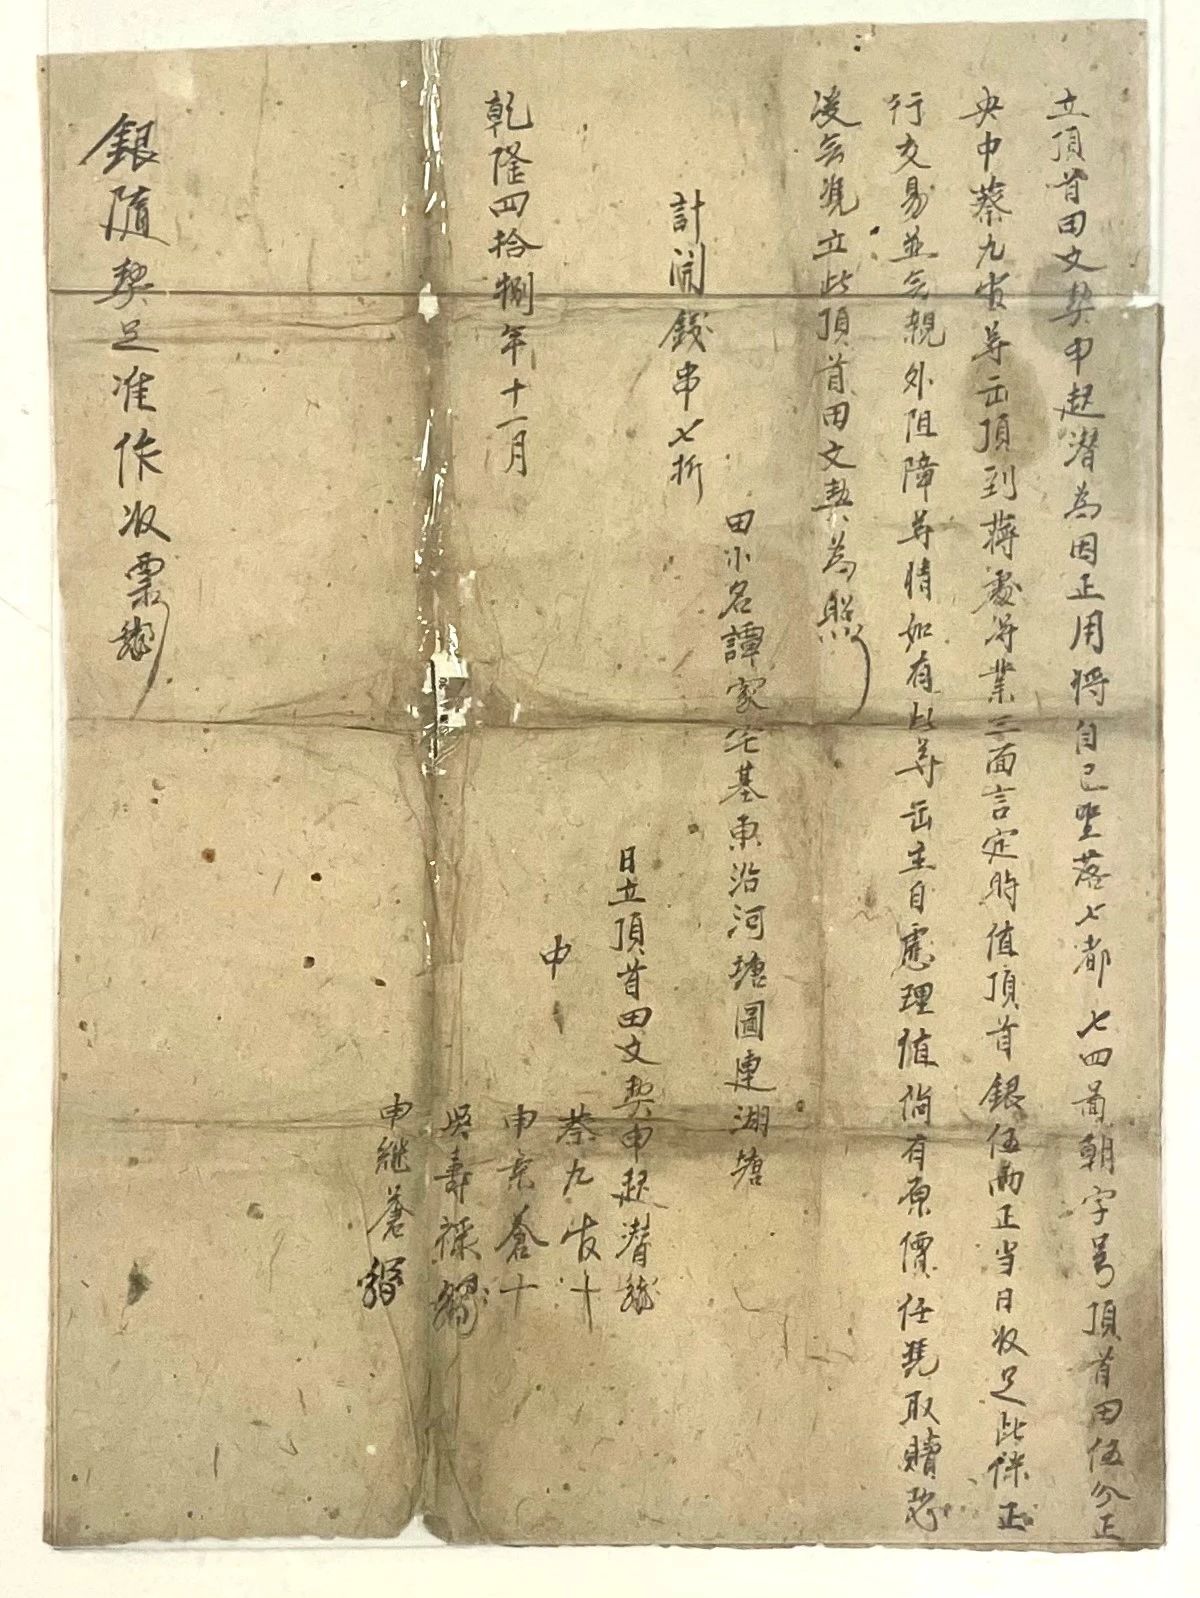 立頂首田文契申起潜為因正用将自己坐落七都七四啚朝字号頂首田伍分正
央中蔡九皆等出頂到蔣處得業三面言定時值頂首銀伍兩正当日收足此係正
行交易並無親外阻障等情如有此等出主自應理值倘有原價任憑取贖恐
後無憑立此頂首田文契為照
田小名譚家宅基東沿河塘圖連湖塘
計開錢串七折
日立頂首田文契申起潜
乾隆四拾捌年十一月
中
蔡九皆十
申景蒼十
吳壽禄
申継蒼
銀隨契足准作收票